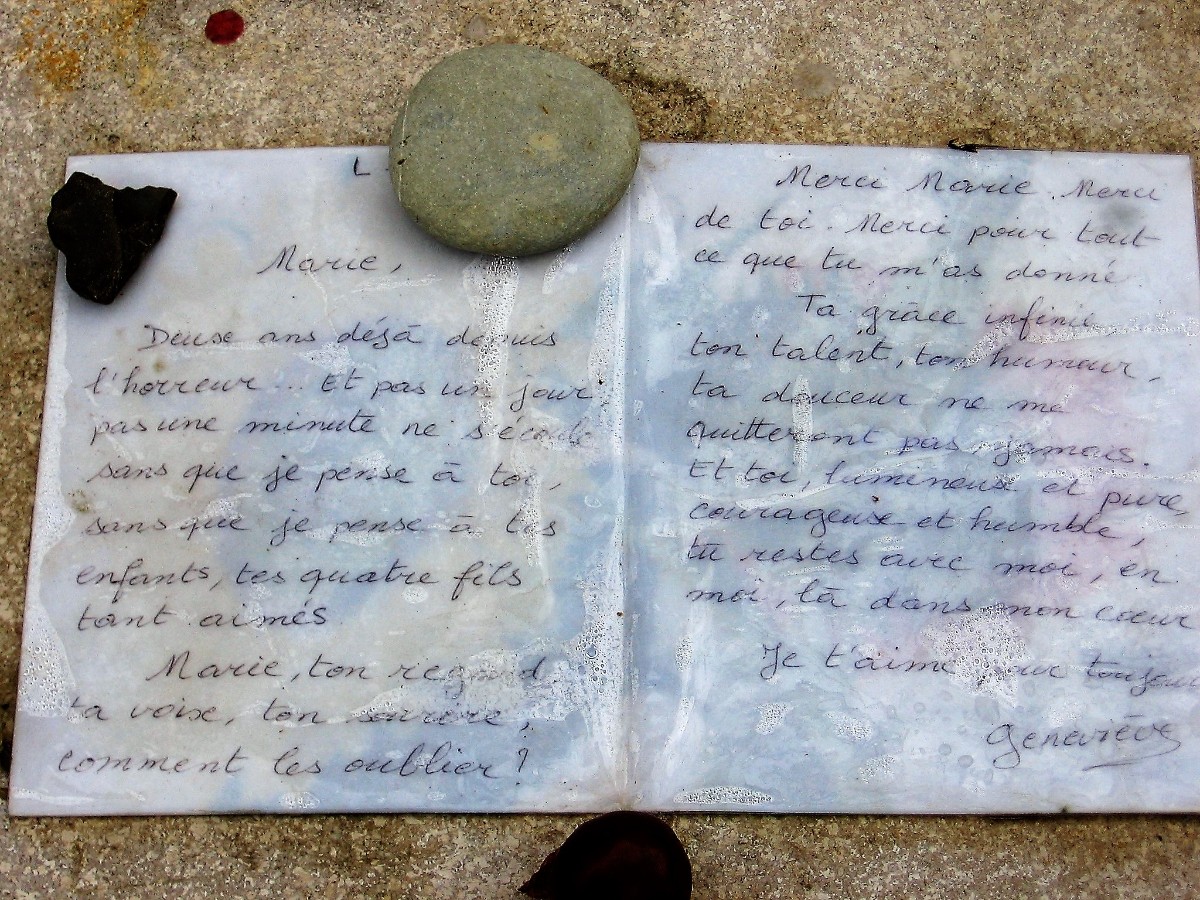 L
Marie,
Deux ans déjà depuis
l'horreur... Et pas un jour
pas une minute ne s'écoule
sans que je pense à toi,
sans que je pense à tes
enfants, tes quatre fils
tant aimés
Marie, ton regard
ta voix, ton sourire,
comment les oublier?
Merci Marie. Merci
de toi. Merci pour tout
ce que tu m'as donné
Ta grâce infinie
ton talent, ton humour,
ta douceur ne me
quitteront pas jamais.
Et toi, lumineuse et pure,
courageuse et humble,
tu restes avec moi, en
moi, là dans mon cœur
Je t'aime pour toujours
Geneviève